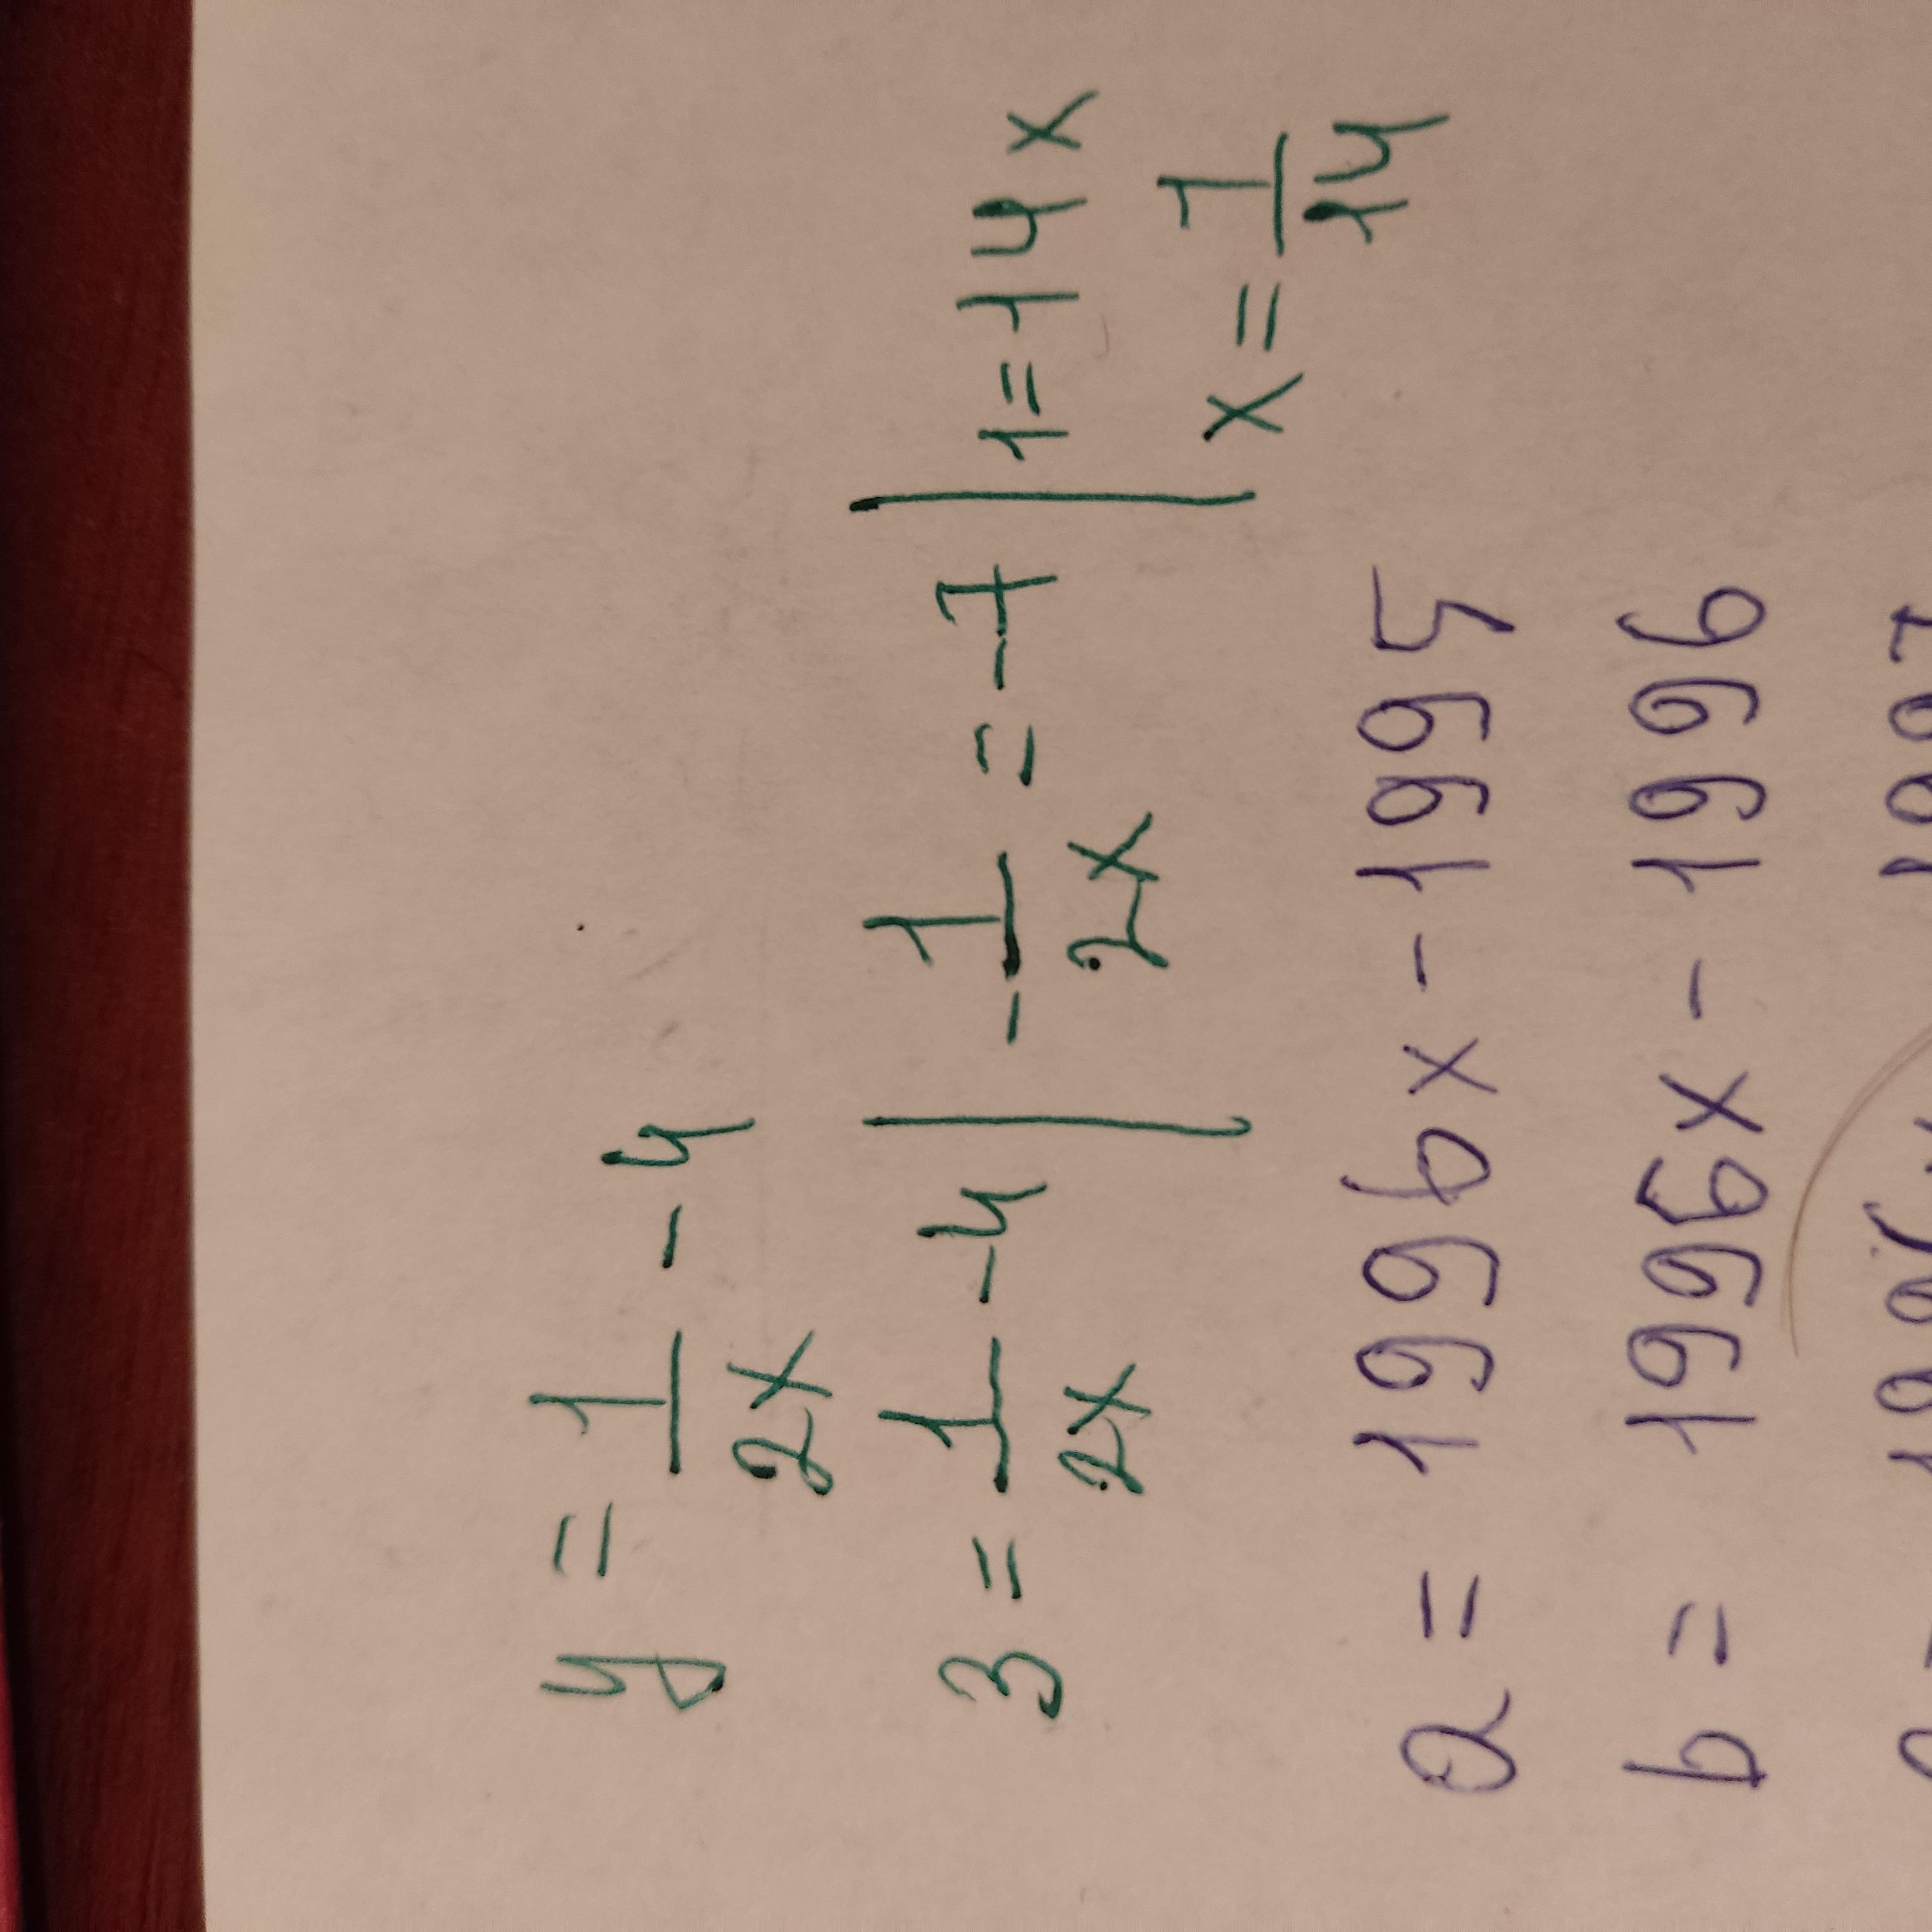 y = 1/2x - 4
3 = 1/2x - 4 | - 1/2x = -7 | 1 = 14x
x = 1/14
a = 1996x - 1995
b = 1996x - 1996